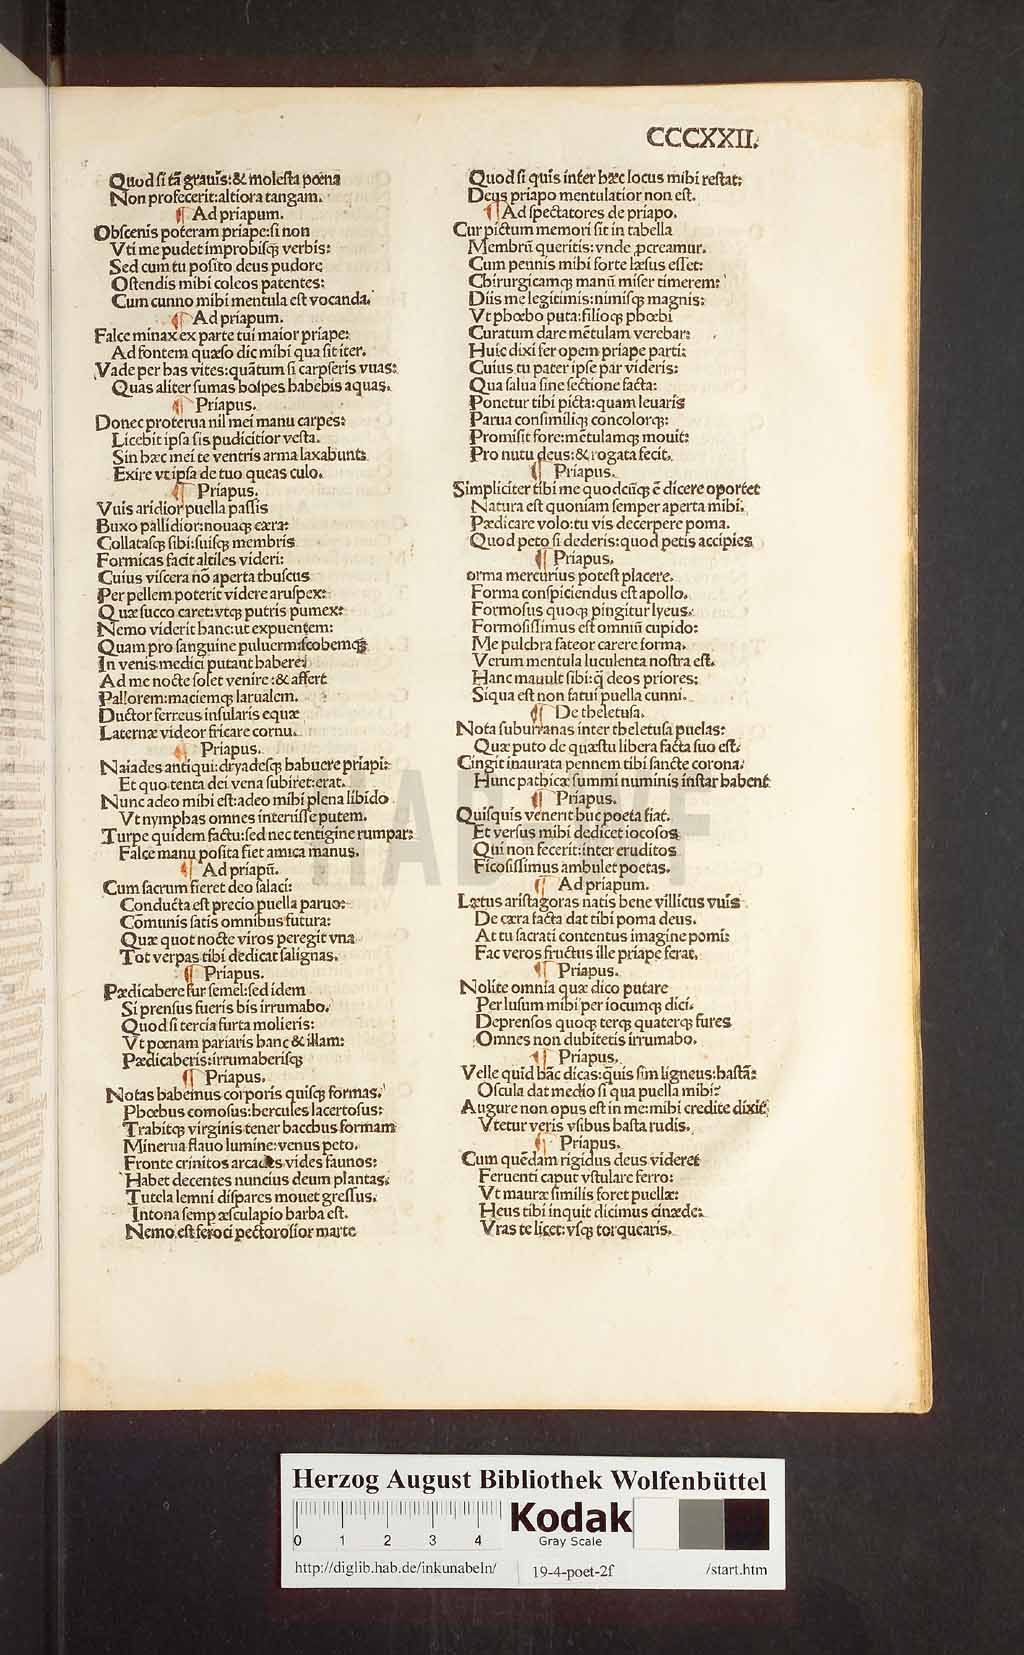 CCCXXII.
Quod si tã grauis:& molesta pœna
Non profecerit:altiora tangam.
¶ Ad priapum.
Obscenis poteram priape:si non
Vti me pudet improbisq; verbis:
Sed cum tu posito deus pudore
Ostendis mihi coleos patentes:
Cum cunno mihi mentula est vocanda.
¶ Ad priapum.
Falce minax ex parte tui maior priape:
Ad fontem quæso dic mihi qua sit iter.
Vade per has vites:quãtum si carpseris vuas:
Quas aliter sumas hospes habebis aquas.
¶ Priapus.
Donec proterua nil mei manu carpes:
Licebit ipsa sis pudicitior vesta.
Sin hæc mei te ventris arma laxabunt
Exire vt ipsa de tuo queas culo.
¶ Priapus.
Vuis aridior puella passis
Buxo pallidior:nouaq; cæra:
Collatasq; sibi:suisq; membris
Formicas facit altiles videri:
Cuius viscera nõ aperta thuscus
Per pellem poterit videre aruspex:
Quæ succo caret:vtq; putris pumex:
Nemo viderit hanc:ut expuentem:
Quam pro sanguine puluerm:scobemq;
In venis medici putant habere:
Ad me nocte solet venire:& affert
Pallorem:maciemq; larualem.
Ductor ferreus insularis equæ
Laternæ videor fricare cornu.
¶ Priapus.
Naiades antiqui:dryadesq; habuere priapi:
Et quo tenta dei vena subiret:erat.
Nunc adeo mihi est:adeo mihi plena libido
Vt nymphas omnes interiisse putem.
Turpe quidem factu:sed nec tentigine rumpar:
Falce manu posita fiet amica manus.
¶ Ad priapũ.
Cum sacrum fieret deo salaci:
Conducta est precio puella paruo:
Cõmunis satis omnibus futura:
Quæ quot nocte viros peregit vna
Tot verpas tibi dedicat salignas.
¶ Priapus.
Pædicabere fur semel:sed idem
Si prensus fueris bis irrumabo.
Quod si tercia furta molieris:
Vt pœnam pariaris hanc & illam:
Pædicaberis:irrumaberisq;
¶ Priapus.
Notas habemus corporis quisq; formas.
Phœbus comosus:hercules lacertosus:
Trahitq; virginis tener bacchus formam
Minerua flauo lumine:venus peto.
Fronte crinitos arcades vides faunos:
Habet decentes nuncius deum plantas.
Tutela lemni dispares mouet gressus.
Intona semp æsculapio barba est.
Nemo est feroci pectorosior marte
Quod si quis inter hæc locus mihi restat:
Deus priapo mentulatior non est.
¶ Ad spectatores de priapo.
Cur pictum memori sit in tabella
Membrũ queritis:vnde pcreamur.
Cum pennis mihi forte læsus esset:
Chirurgicamq; manũ miser timerem:
Diis me legitimis:nimisq; magnis:
Vt phœbo puta:filioq; phœbi
Curatum dare mẽtulam verebar:
Huic dixi fer opem priape parti:
Cuius tu pater ipse par videris:
Qua salua sine sectione facta:
Ponetur tibi picta:quam leuaris
Parua consimiliq; concolorq;:
Promisit fore:mẽtulamq; mouit:
Pro nutu deus:& rogata fecit.
¶ Priapus.
Simpliciter tibi me quodcũq; ẽ dicere oportet
Natura est quoniam semper aperta mihi.
Pædicare volo:tu vis decerpere poma.
Quod peto si dederis:quod petis accipies
¶ Priapus.
orma mercurius potest placere.
Forma conspiciendus est apollo.
Formosus quoq; pingitur lyeus.
Formosissimus est omniũ cupido:
Me pulchra fateor carere forma.
Verum mentula luculenta nostra est.
Hanc mauult sibi:q̃ deos priores:
Siqua est non fatui puella cunni.
¶ De theletusa.
Nota suburranas inter theletusa puelas:
Quæ puto de quæstu libera facta suo est.
Cingit inaurata pennem tibi sancte corona:
Hunc pathicæ summi numinis instar habent
¶ Priapus.
Quisquis venerit huc poeta fiat.
Et versus mihi dedicet iocosos
Qui non fecerit:inter eruditos
Ficosissimus ambulet poetas.
¶ Ad priapum.
Lætus aristagoras natis bene villicus vuis
De cæra facta dat tibi poma deus.
At tu sacrati contentus imagine pomi:
Fac veros fructus ille priape ferat.
¶ Priapus.
Nolite omnia quæ dico putare
Per lusum mihi per iocumq; dici.
Deprensos quoq; terq; quaterq; fures
Omnes non dubitetis irrumabo.
¶ Priapus.
Velle quid hãc dicas:q̃uis sim ligneus:hastã:
Oscula dat medio si qua puella mihi?
Augure non opus est in me:mihi credite dixit
Vtetur veris vsibus hasta rudis.
¶ Priapus.
Cum quẽdam rigidus deus videret
Feruenti caput vstulare ferro:
Vt mauræ similis foret puellæ:
Heus tibi inquit dicimus cinæde:
Vras te licet:vsq; torquearis.
HAB WF
Herzog August Bibliothek Wolfenbüttel
0 1 2 3 4
Kodak
Gray Scale
http://diglib.hab.de/inkunabeln/ 19-4-poet-2f /start.htm